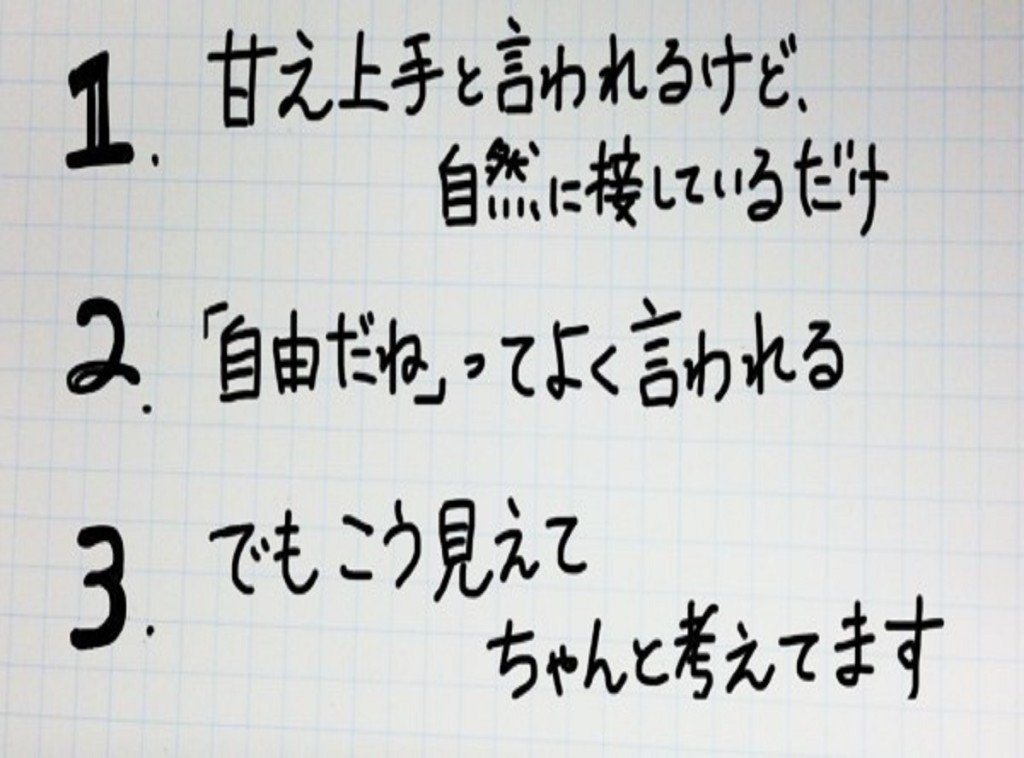 1. 甘え上手と言われるけど、
自然に接しているだけ
2. 「自由だね」ってよく言われる
3. でもこう見えて
ちゃんと考えてます